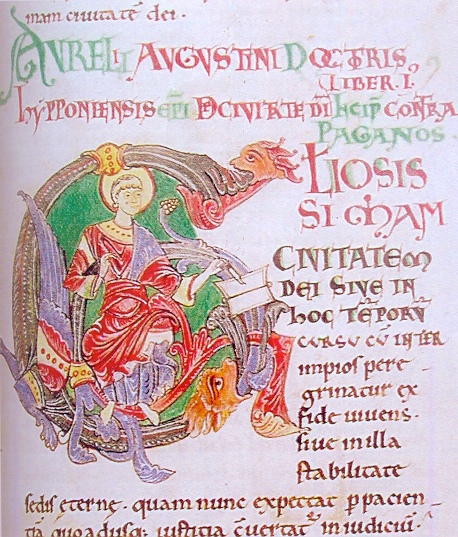 mam ciuitatē dei.
AVRELI AVGVSTINI DOCTORIS
LIBER. I.
hYPPONIENSIS EP̄I DE CIVITATE D̄I INCIP̄ CONTRA
PAGANOS.
GLIOSIS
SIMAM
CIVITATEM
DEI SIVE IN
hOC TĒPORV̄
CVRSV CV̄ INTER
impios pere
grinatur ex
fide uiuens.
siue in illa
stabilitate
sedis eterne. quam nunc expectat p pacien
tiā quoadusq; iusticia c̄uertat̃ in iudiciū.